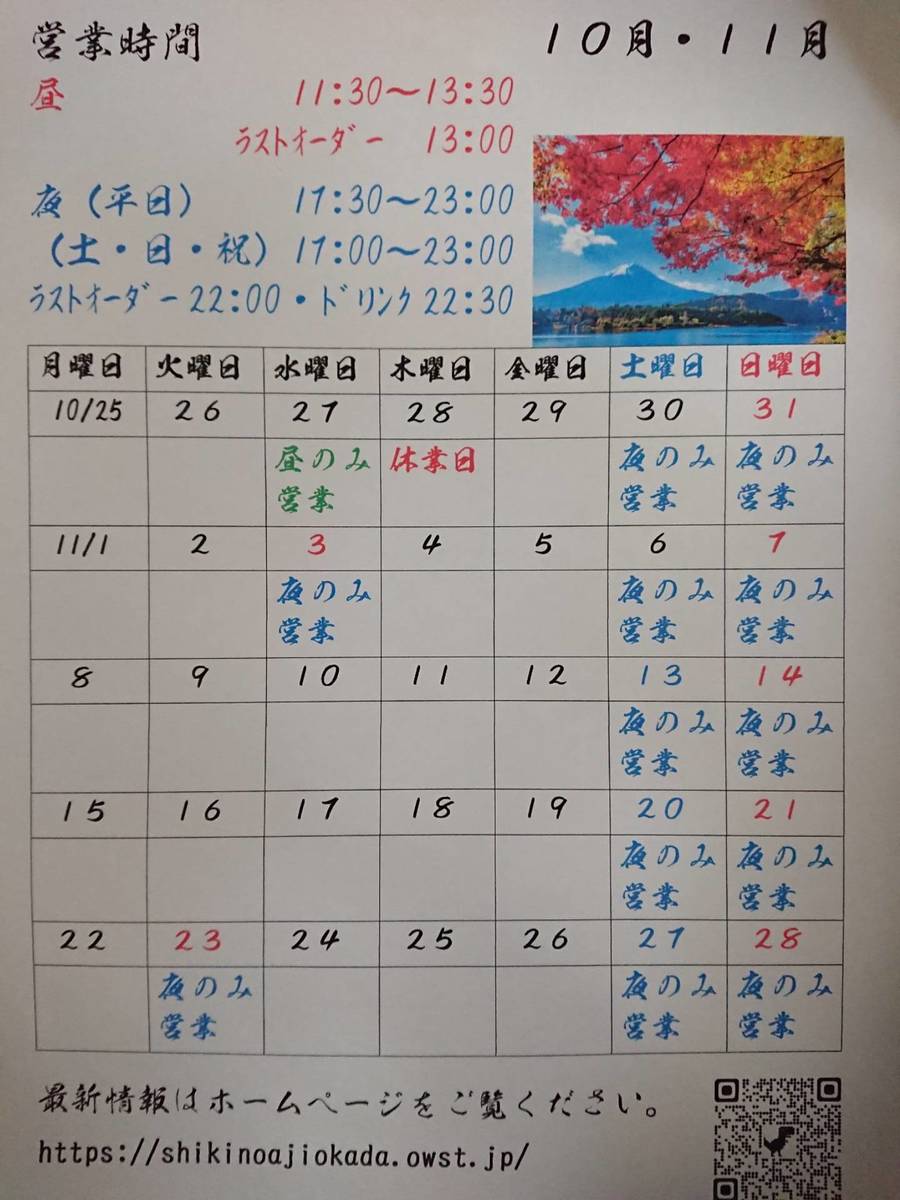 営業時間 10月・11月
昼 11:30～13:30
ラストオーダー 13:00
夜（平日） 17:30～23:00
（土・日・祝）17:00～23:00
ラストオーダー22:00・ドリンク22:30
月曜日 火曜日 水曜日 木曜日 金曜日 土曜日 日曜日
10/25 26 27 28 29 30 31
昼のみ 休業日 夜のみ 夜のみ
営業 営業 営業
11/1 2 3 4 5 6 7
夜のみ 夜のみ 夜のみ
営業 営業 営業
8 9 10 11 12 13 14
夜のみ 夜のみ
営業 営業
15 16 17 18 19 20 21
夜のみ 夜のみ
営業 営業
22 23 24 25 26 27 28
夜のみ 夜のみ 夜のみ
営業 営業 営業
最新情報はホームページをご覧ください。
https://shikinoajiokada.owst.jp/